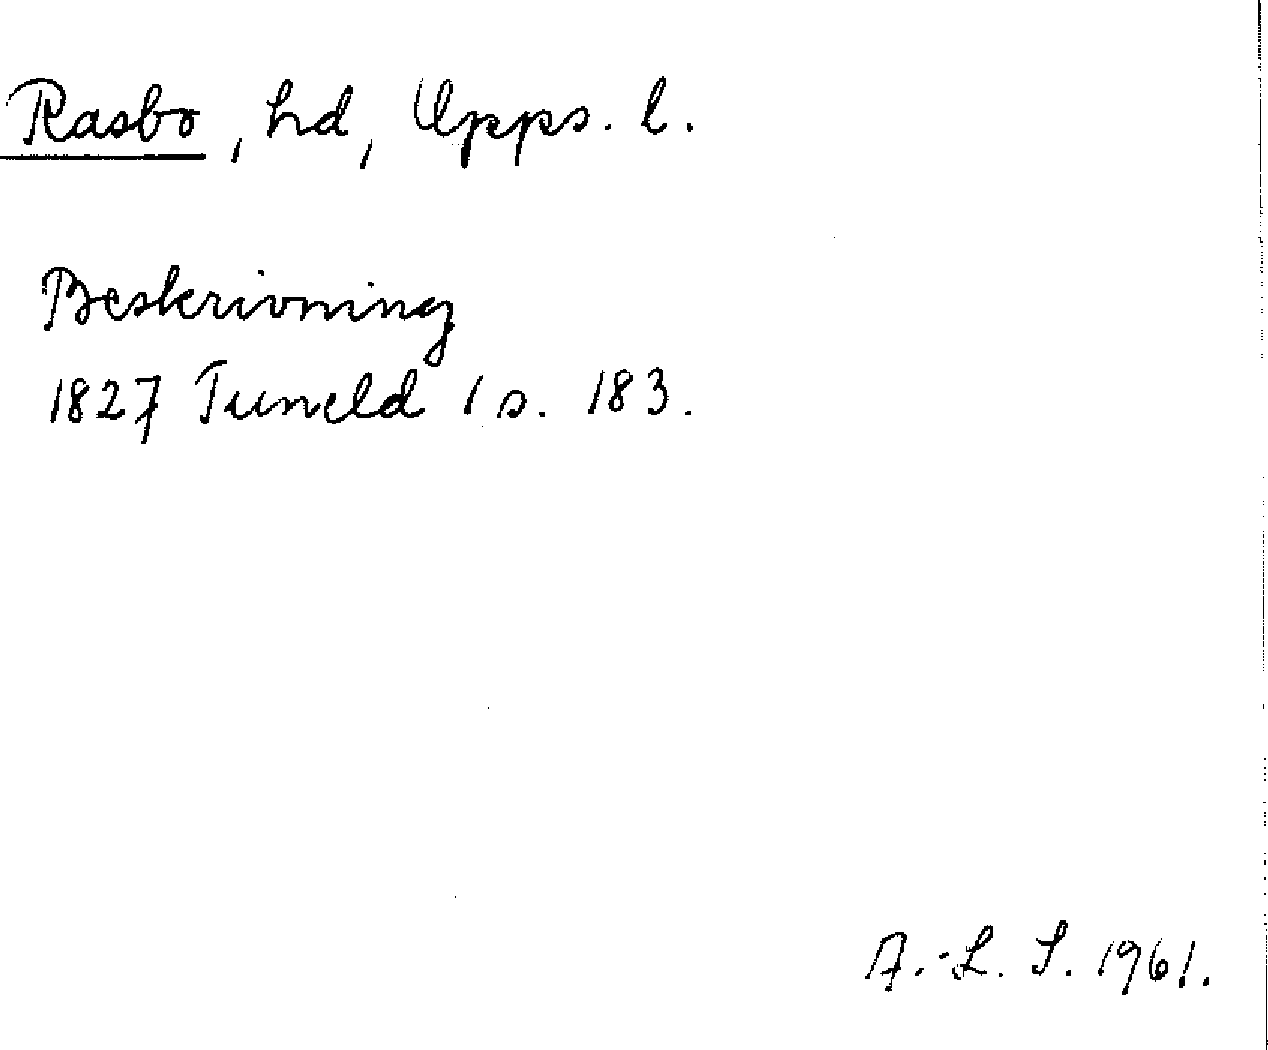 Rasbo, hd, Upps. l.
Beskrivning
1827 Tuneld 1 s. 183.
A.-L. S. 1961.